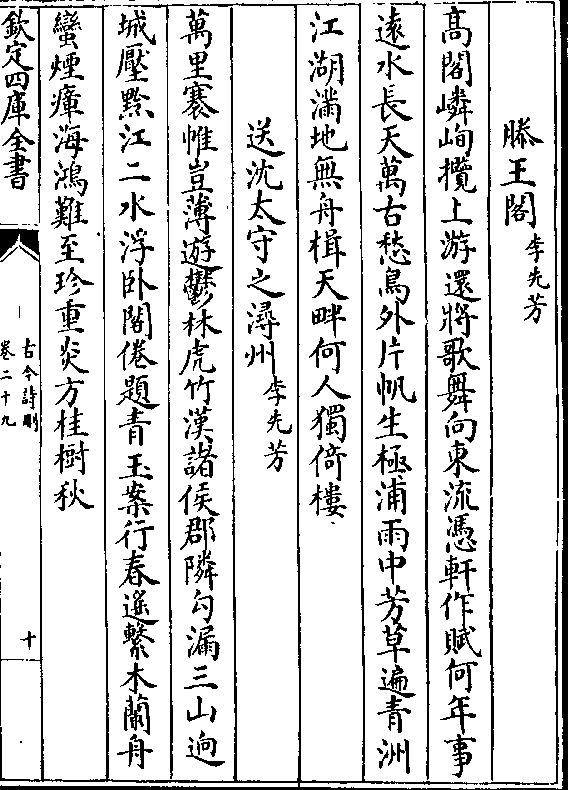 滕王閣李先芳
髙閣嶙峋攬上游還將歌舞向東流憑軒作賦何年事
逺水長天萬古愁鳥外片帆生極浦雨中芳草遍青洲
江湖滿地無舟楫天畔何人獨倚樓
送沈太守之潯州李先芳
萬里褰帷豈薄遊鬱林虎竹漢諸侯郡隣勾漏三山逈
城壓黔江二水浮卧閣倦題青玉案行春遥繫木蘭舟
蠻煙瘴海鴻難至珍重炎方桂樹秋
欽定四庫全書
古今詩刪
卷二十九
十